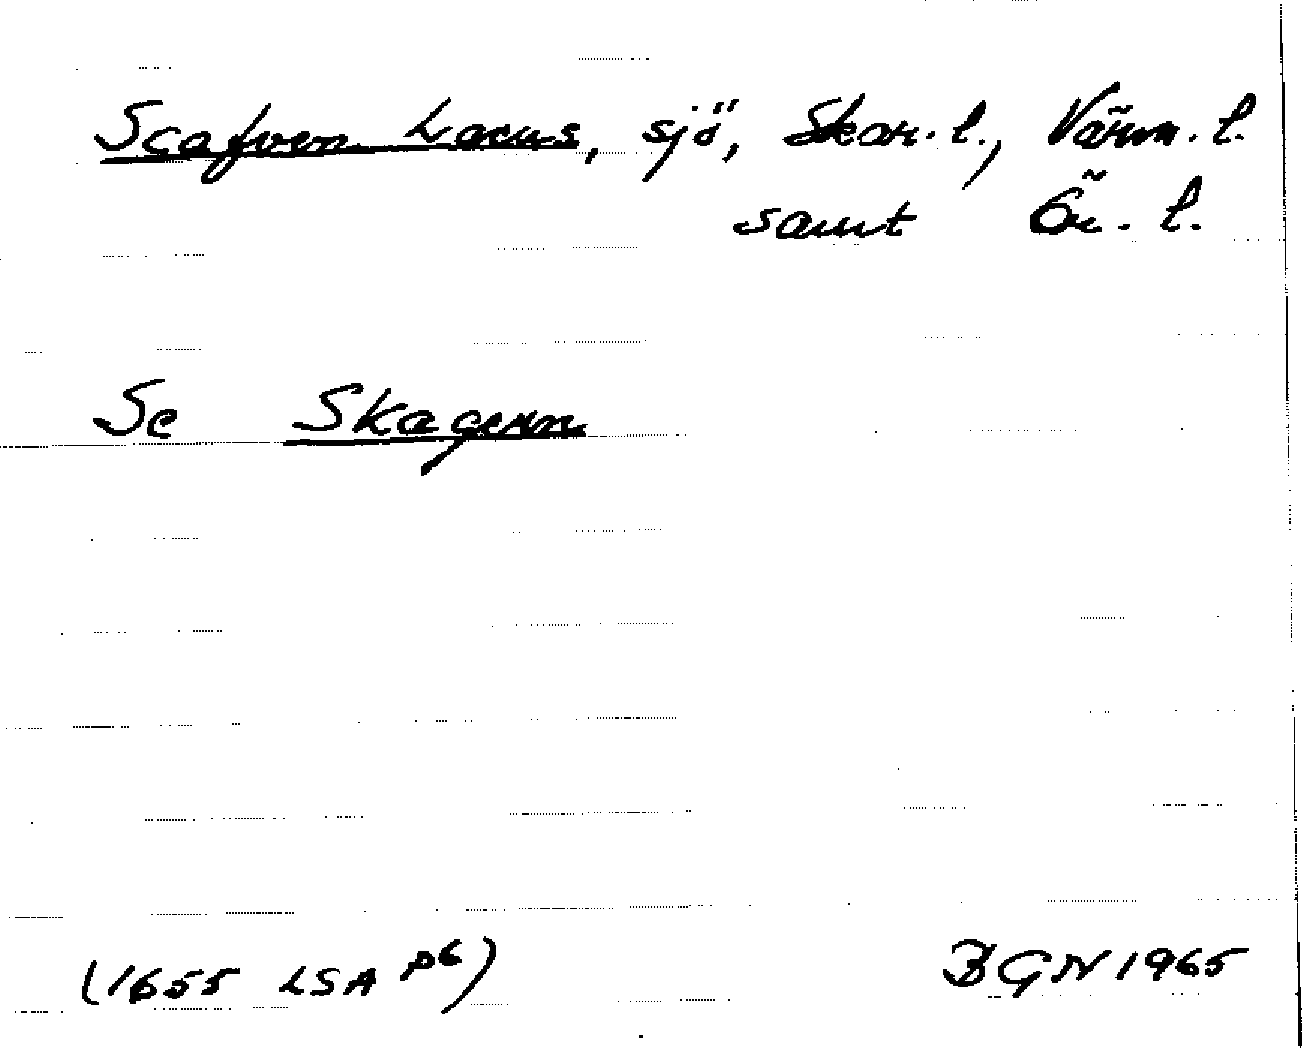 Scafven Lacus, sjö, Skar. l., Värm. l.
samt Ör. l.
Se Skagern
(1655 LSA p6)
BGN 1965